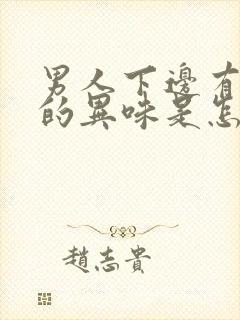 男人下邊有
的異味是怎
趙志貴